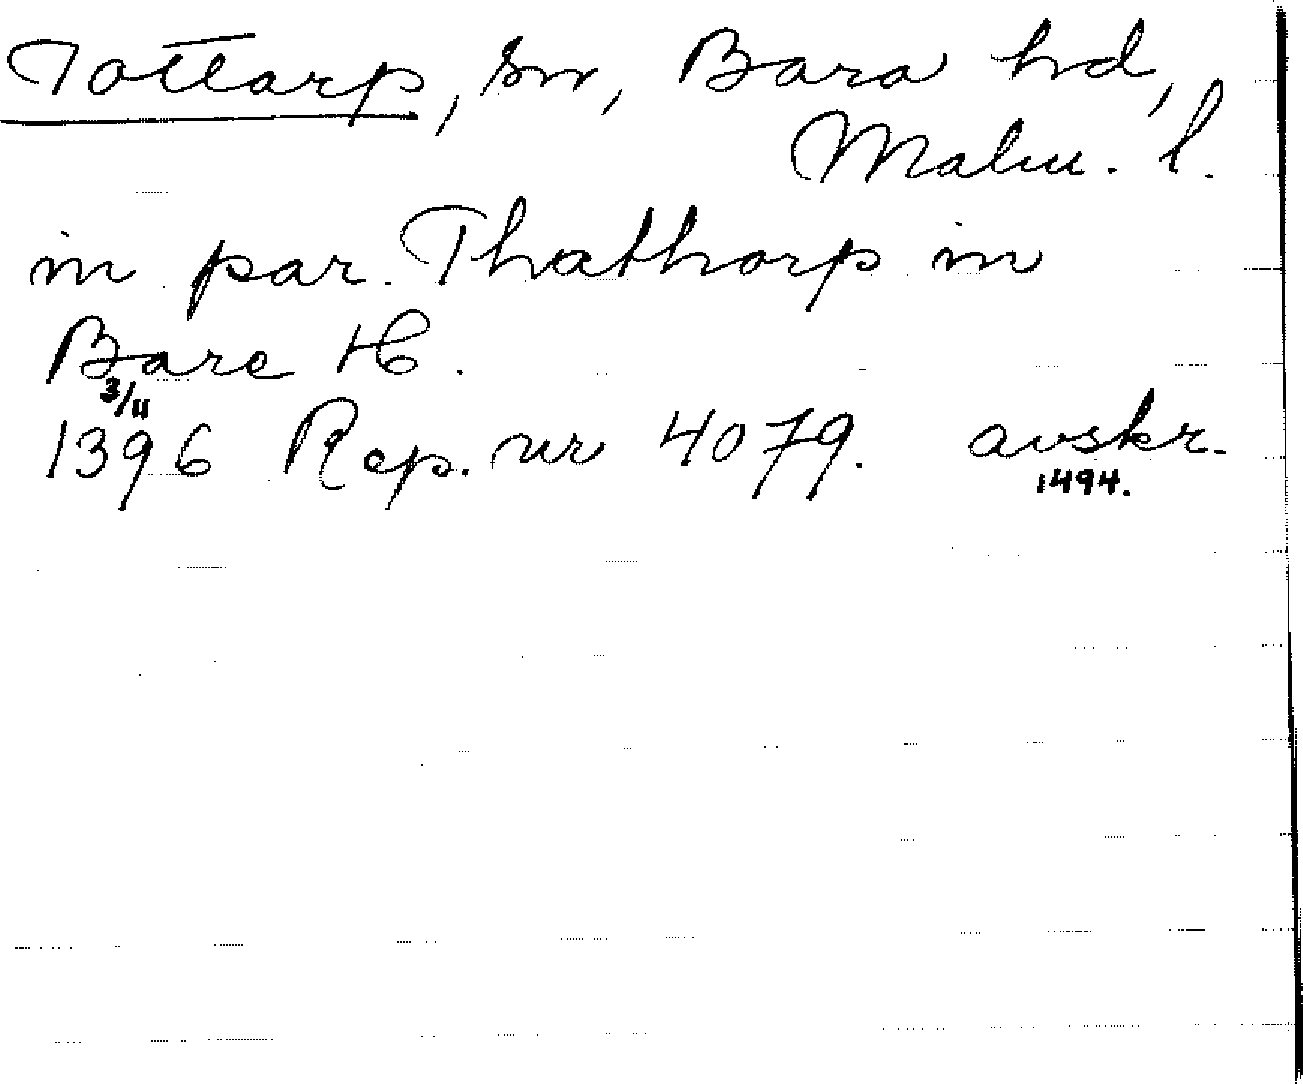 Tottarp, sn, Bara hd,
Malm. l.
in par. Thathorp in
Bare H.
3/11
1396 Rep. nr 4079. avskr.
1494.